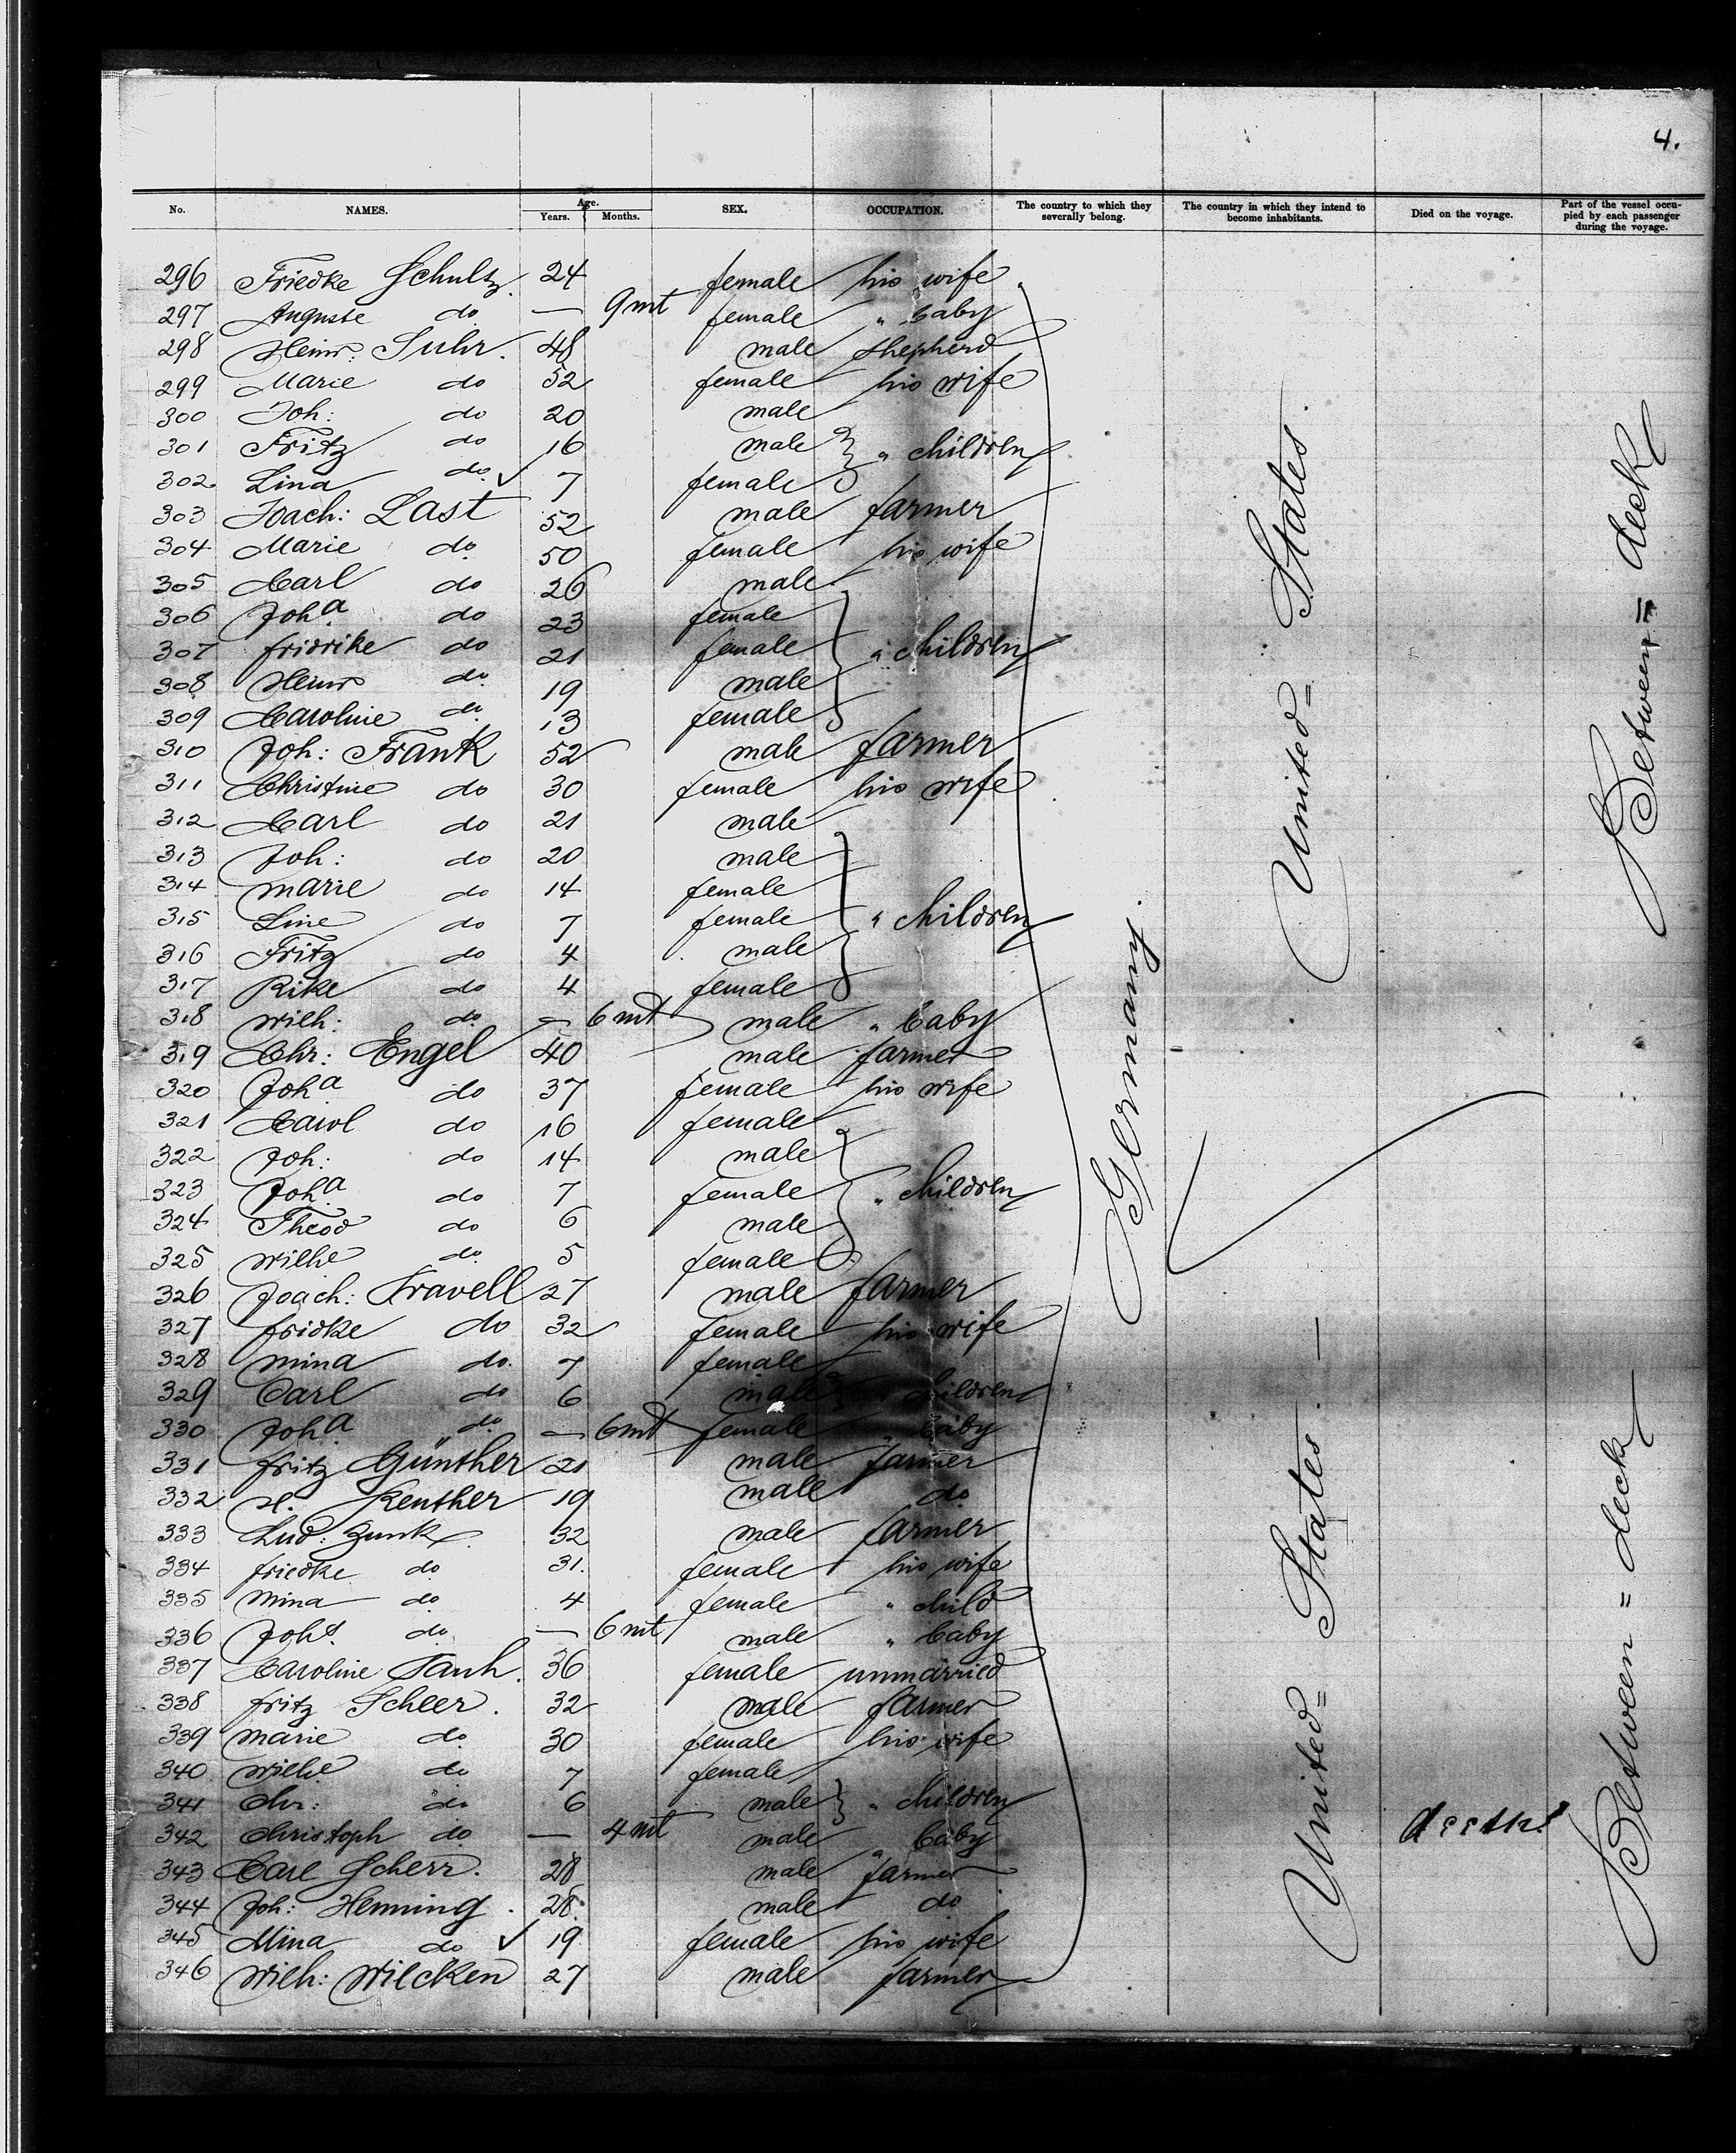 4.
No. NAMES. Age. Years. Months. SEX. OCCUPATION. The country to which they severally belong. The country in which they intend to become inhabitants. Died on the voyage. Part of the vessel occupied by each passenger during the voyage.
296 Friedke Schultz. 24 female his wife
297 Auguste do — 9 mt female " baby
298 Heinr. Suhr. 48 male shepherd
299 Marie do 52 female his wife
300 Joh: do 20 male
301 Fritz do 16 male " children
302 Lina do ✓ 7 female
303 Joach: Last 52 male farmer
304 Marie do 50 female his wife
305 Carl do 26 male
306 Joha do 23 female
307 fridrike do 21 female " children
308 Heinr do 19 male
309 Caroline do 13 female
310 Joh: Frank 52 male farmer
311 Christine do 30 female his wife
312 Carl do 21 male
313 Joh: do 20 male
314 marie do 14 female
315 Line do 7 female " children
316 Fritz do 4 male
317 Rike do 4 female
318 wilh: do — 6 mt male " baby
319 Chr: Engel 40 male farmer
320 Joha do 37 female his wife
321 Carol do 16 female
322 Joh: do 14 male
323 Joha do 7 female " children
324 Theod do 6 male
325 wilhe do 5 female
326 Joach: Travell 27 male farmer
327 fridke do 32 female his wife
328 mina do. 7 female
329 Carl do 6 male children
330 Joha do — 6 mt female " baby
331 fritz Günther 21 male farmer
332 H. Reuther 19 male do
333 Lud: Zunk 32 male farmer
334 friedke do 31. female his wife
335 mina do 4 female " child
336 Joh do — 6 mt male " baby
337 Caroline 36 female unmarried
338 fritz Scheer. 32 male farmer
339 marie do 30 female his wife
340 wilhe do 7 female
341 Chr: do 6 male " children
342 Christoph do — 4 mt male " baby
343 Carl Scherr. 28 male farmer
344 Joh: Henning. 28. male do
345 Mina do ✓ 19 female his wife
346 Wilh: Wilcken 27 male farmer
Germany.
United= States.
United= States. —
death!
Between= deck
Between = deck